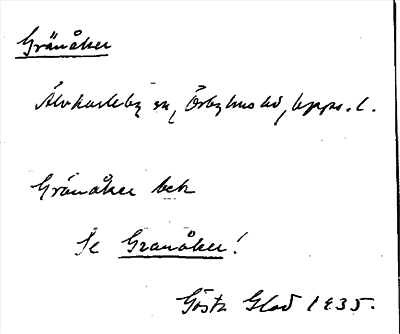 Gränåker
Älvkarleby sn, Örbyhus hd, Upps. l.
Gränåker bek
Se Granåker!
Gösta Glad 1935.